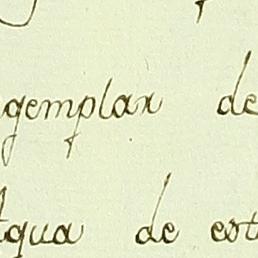 gemplar de
tqua de est